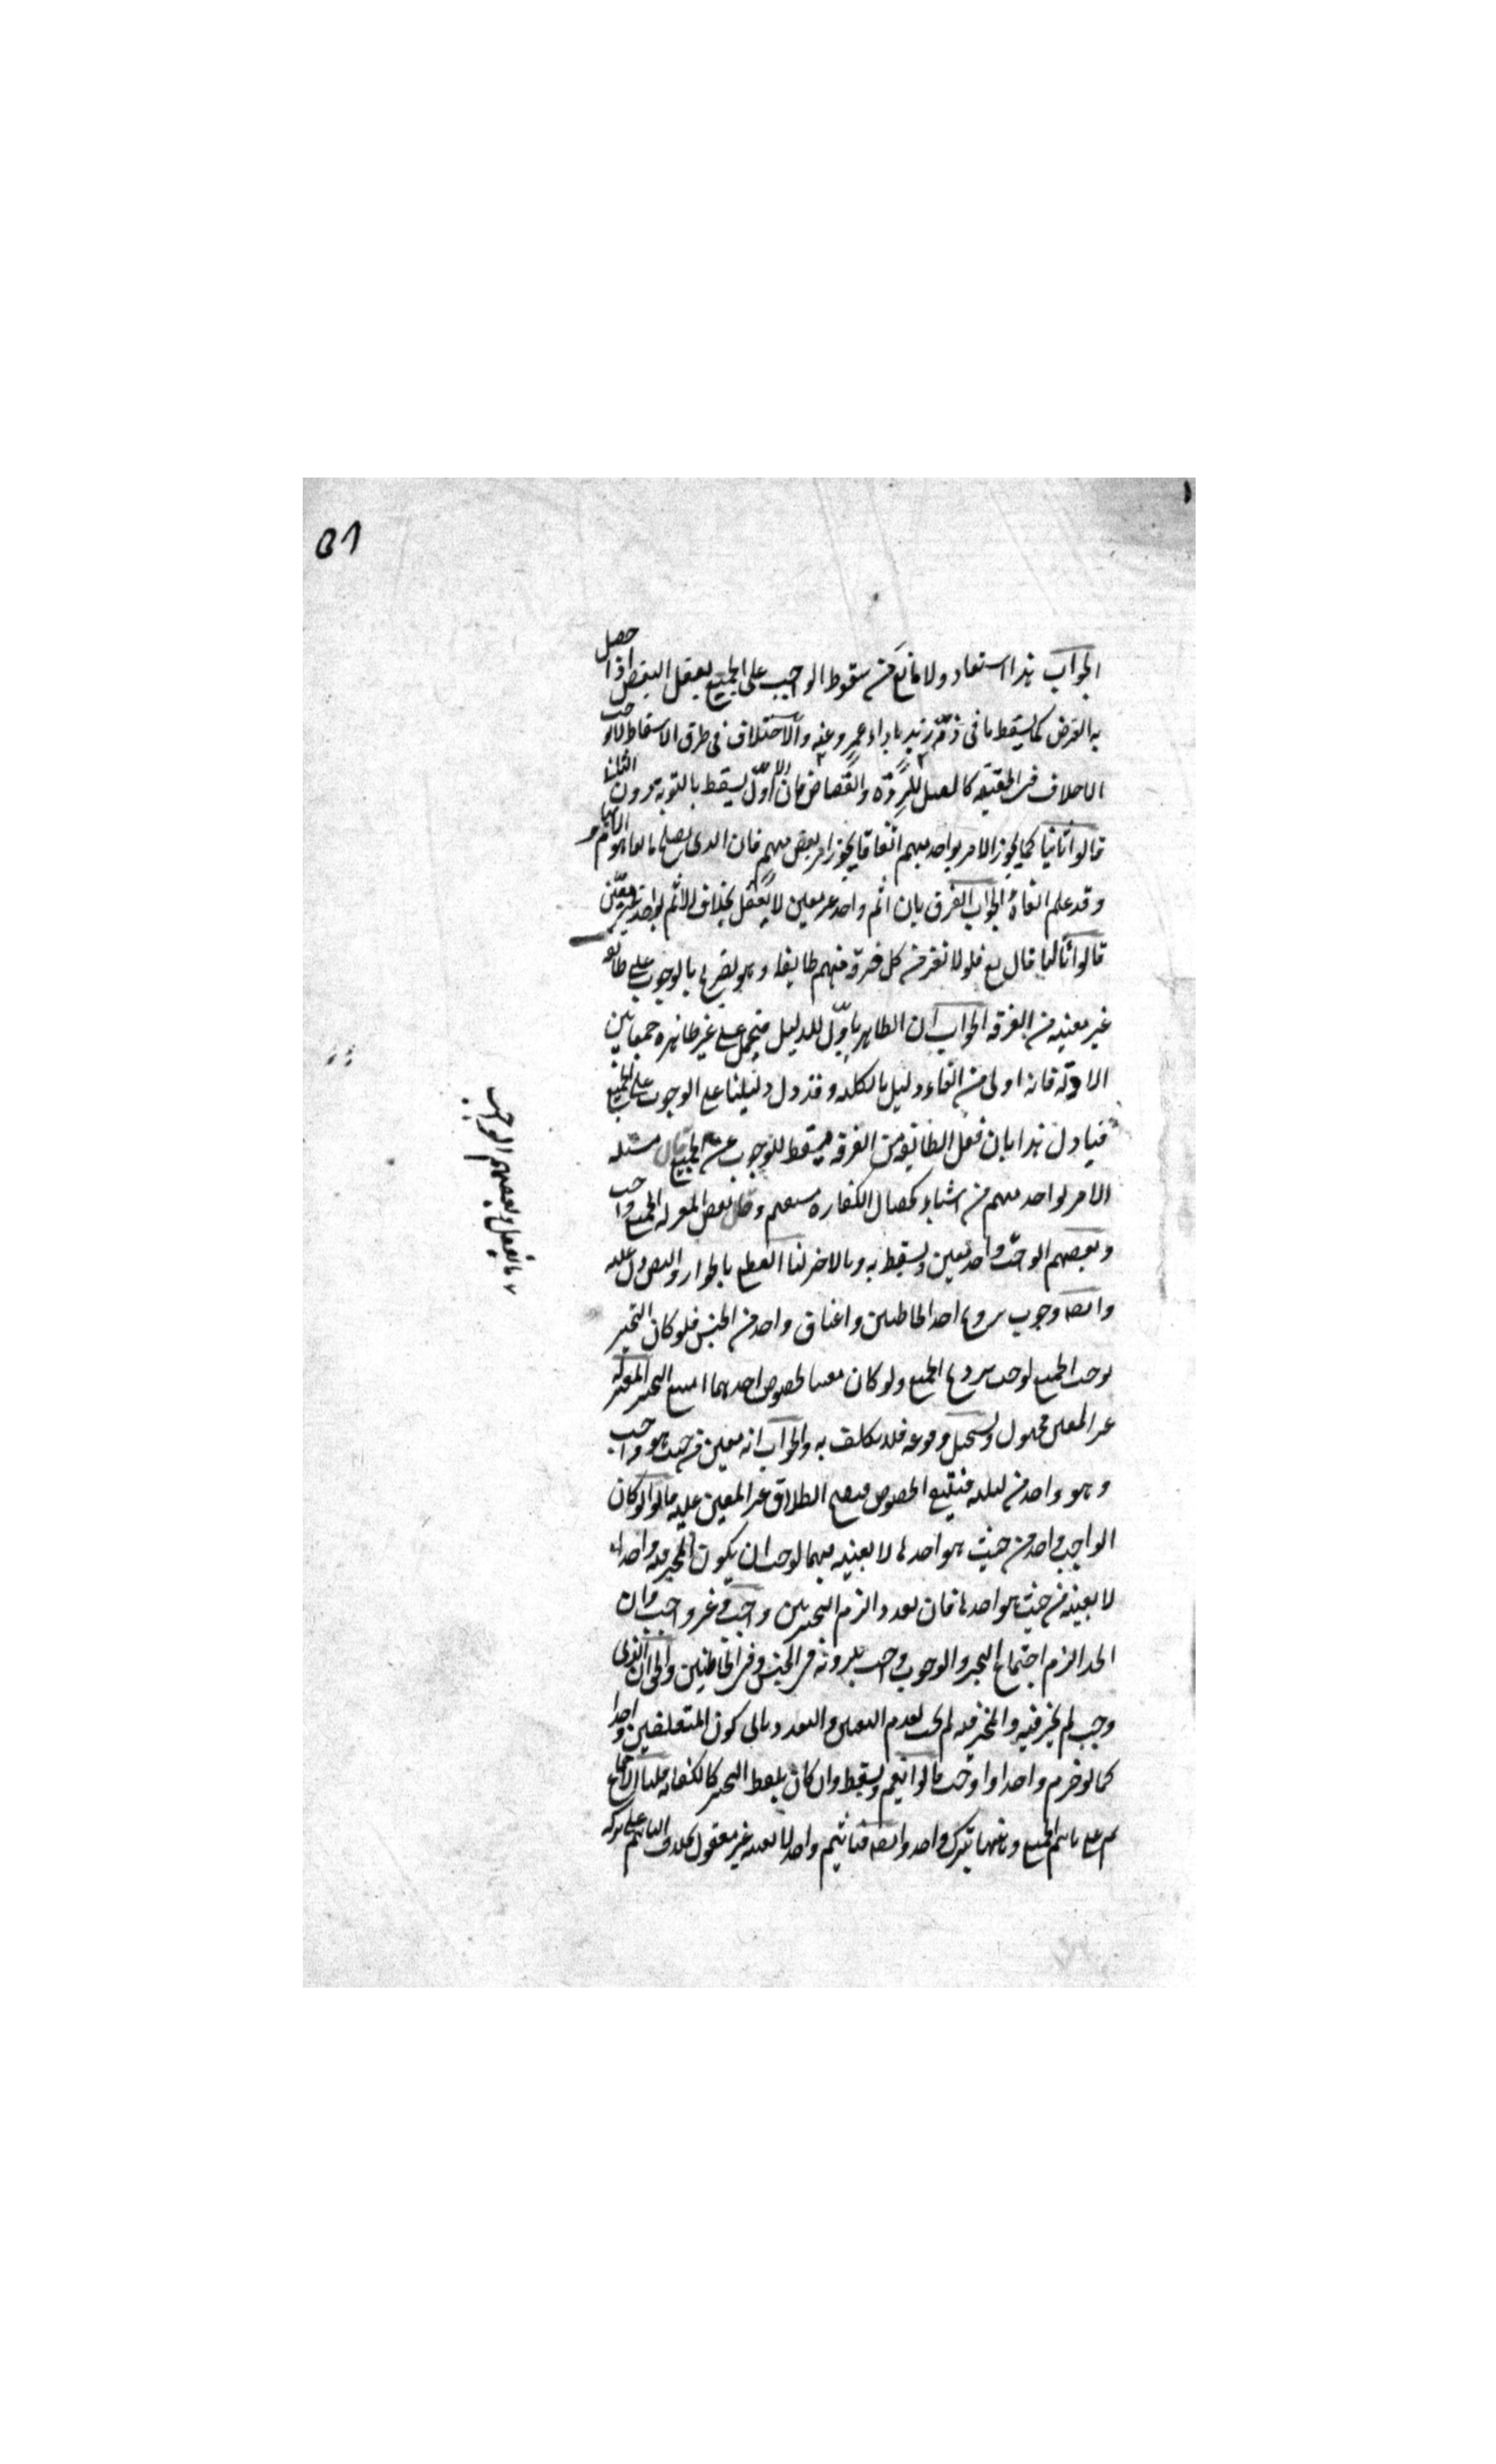 ٥١
الجواب هذا استبعاد ولا مانع من سقوط الواجب على الجميع بفعل البعض اذا حصل
به الغرض كما يسقط ما فى ذمة زيد باداء عمرو عنه والاختلاف فى طرق الاسقاط لا يوجب
الاختلاف فى الحقيقة كالقتل للردة والقصاص فان الاول يسقط بالتوبة دون الثانى
قالوا ثانيا كما يجوز الامر بواحد مبهم اتفاقا يجوز امر بعض مبهم فان الذى يصلح مانعا هو الابهام
وقد علم الغاؤه الجواب الفرق بان اثم واحد غير معين لا يعقل بخلاف الاثم بواحد غير معين
قالوا ثالثا قال تع فلولا نفر من كل فرقة منهم طايفة وهو تصريح بالوجوب على طايفة
غير معينة من الفرقة الجواب ان الظاهر ياول للدليل فيحمل على غير ظاهره جمعا بين
الادلة فانه اولى من الغاء دليل بالكلية وقد دل دليلنا على الوجوب على الجميع
فياول هذا بان فعل الطائفة من الفرقة مسقط للوجوب عن الجميع قال مسئلة
الامر بواحد مبهم من اشياء كخصال الكفارة مستقيم وقال بعض المعتزلة الجميع واجب
وبعضهم الواجب واحد معين ويسقط به وبالاخر لنا القطع بالجواز والنص دل عليه
وايضا وجوب تزويج احد الخاطبين واعتاق واحد من الجنس فلو كان التخيير
يوجب الجميع لوجب تزويج الجميع ولو كان معينا لخصوص احدهما امتنع التخيير المعتزلة
غير المعين مجهول ويستحيل وقوعه فلا يكلف به والجواب انه معين من حيث هو واجب
وهو واحد من ثلثة فينتفى الخصوص فصح اطلاق غير المعين عليه قالوا لو كان
الواجب واحد من حيث هو احدها لا بعينه مبهما لوجب ان يكون المخير فيه واحدا
لا بعينه من حيث هو احدها فان تعددا لزم التخيير بين واجب وغير واجب وان
اتحدا لزم اجتماع التخيير والوجوب واجيب بلزومه فى الجنس وفى الخاطبين والحق ان الذى
وجب لم يخير فيه والمخير فيه لم يجب لعدم التعين والتعدد يابى كون المتعلقين واحدا
كما لو حرم واحدا واوجب قالوا يعم ويسقط وان كان بلفظ التخيير كالكفاية قلنا الاجماع
ثم على تاثيم الجميع وههنا بترك واحد وايضا فتاثيم واحد لا بعينه غير معقول بخلاف التاثيم على ترك
ما يفعل وبعضهم الواجب